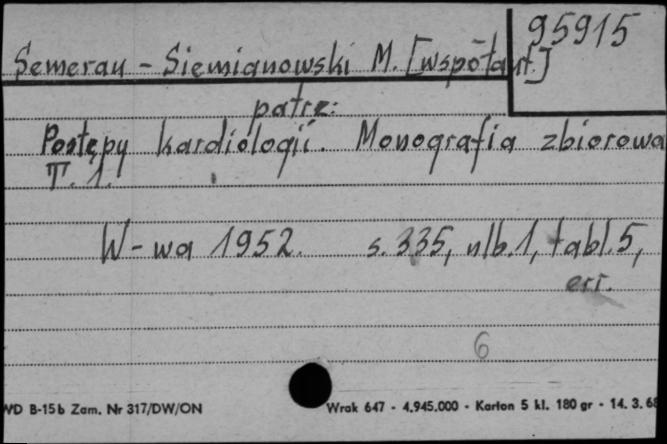 95915
Semerau - Siemianowski M. [współaut.]
patrz:
Postępy kardiologii. Monografia zbiorowa
T. 1.
W-wa 1952. s. 335, nlb. 1, tabl. 5,
err.
6
WD B-15b Zam. Nr 317/DW/ON Wrak 647 - 4.945.000 - Karton 5 kl. 180 gr - 14. 3. 68